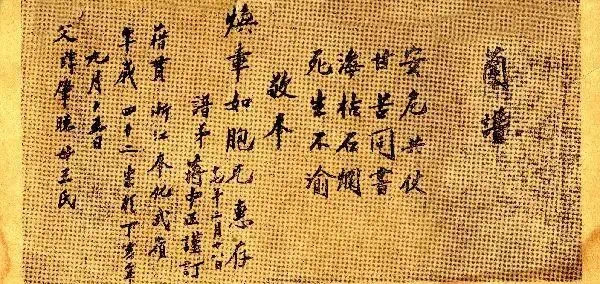 蘭譜
安危共仗
甘苦同嘗
海枯石爛
死生不渝
敬奉
煥章如胞兄惠存
譜弟蔣中正謹訂
十七年二月十八日
籍貫 浙江奉化武嶺
年歲 四十二 生於丁亥年
九月十五日
父諱肇聰母王氏